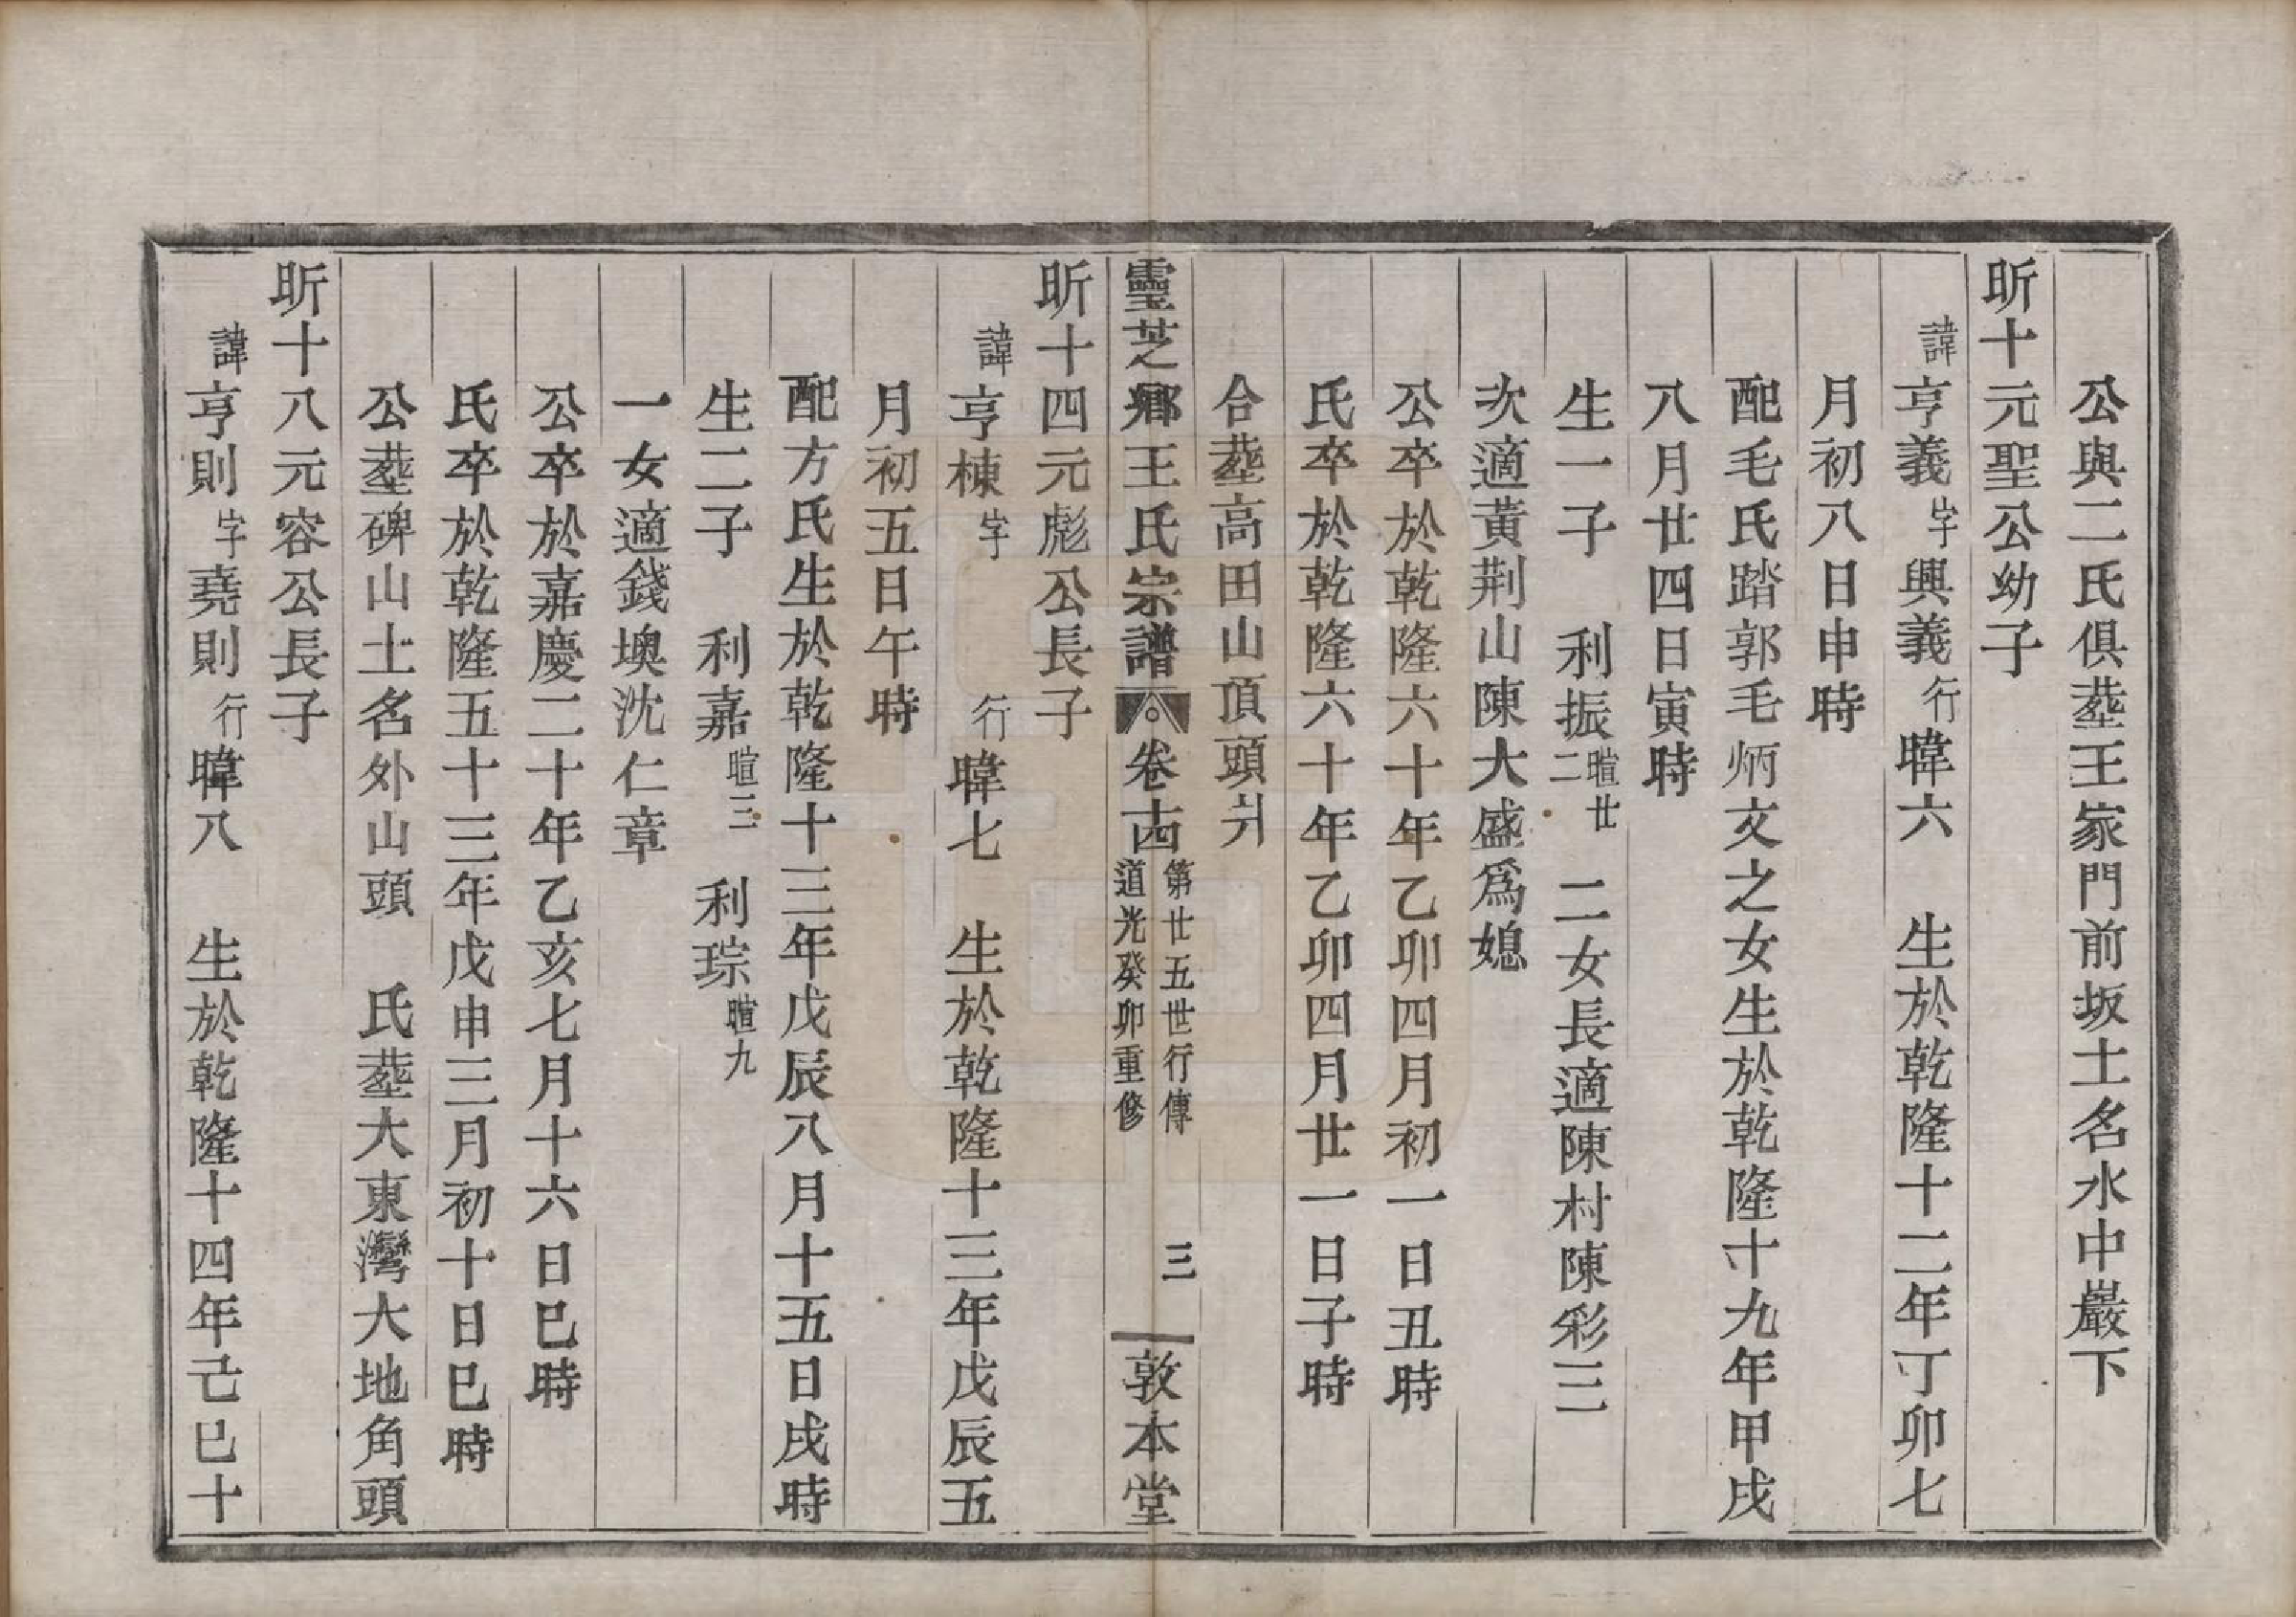 公與二氏俱塟王家門前坂土名水中巖下
昕十元聖公幼子
諱亨義字興義行暐六　生於乾隆十二年丁卯七
月初八日申時
配毛氏踏郭毛炳文之女生於乾隆十九年甲戌
八月廿四日寅時
生一子　利振暄廿二　二女長適陳村陳彩三
次適黃荆山陳大盛爲媳
公卒於乾隆六十年乙卯四月初一日丑時
氏卒於乾隆六十年乙卯四月廿一日子時
合塟高田山頂頭爿
靈芝鄉王氏宗譜　卷十四　第廿五世行傳　道光癸卯重修　三　敦本堂
昕十四元彪公長子
諱亨棟字　行暐七　生於乾隆十三年戊辰五
月初五日午時
配方氏生於乾隆十三年戊辰八月十五日戌時
生二子　利嘉暄三　利琮暄九
一女適錢墺沈仁章
公卒於嘉慶二十年乙亥七月十六日巳時
氏卒於乾隆五十三年戊申三月初十日巳時
公塟碑山土名外山頭　氏塟大東灣大地角頭
昕十八元容公長子
諱亨則字堯則行暐八　生於乾隆十四年己巳十